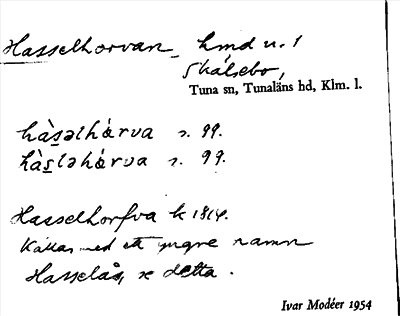 Hasselhorvan, hmd u. 1
Skälsebo,
Tuna sn, Tunaläns hd, Klm. l.
hàsəlhɑ́rva s. 99.
hàsləhɑ́rva s. 99.
Hasselhorfva k 1814.
Kallas med ett yngre namn
Hasselås, se detta.
Ivar Modéer 1954